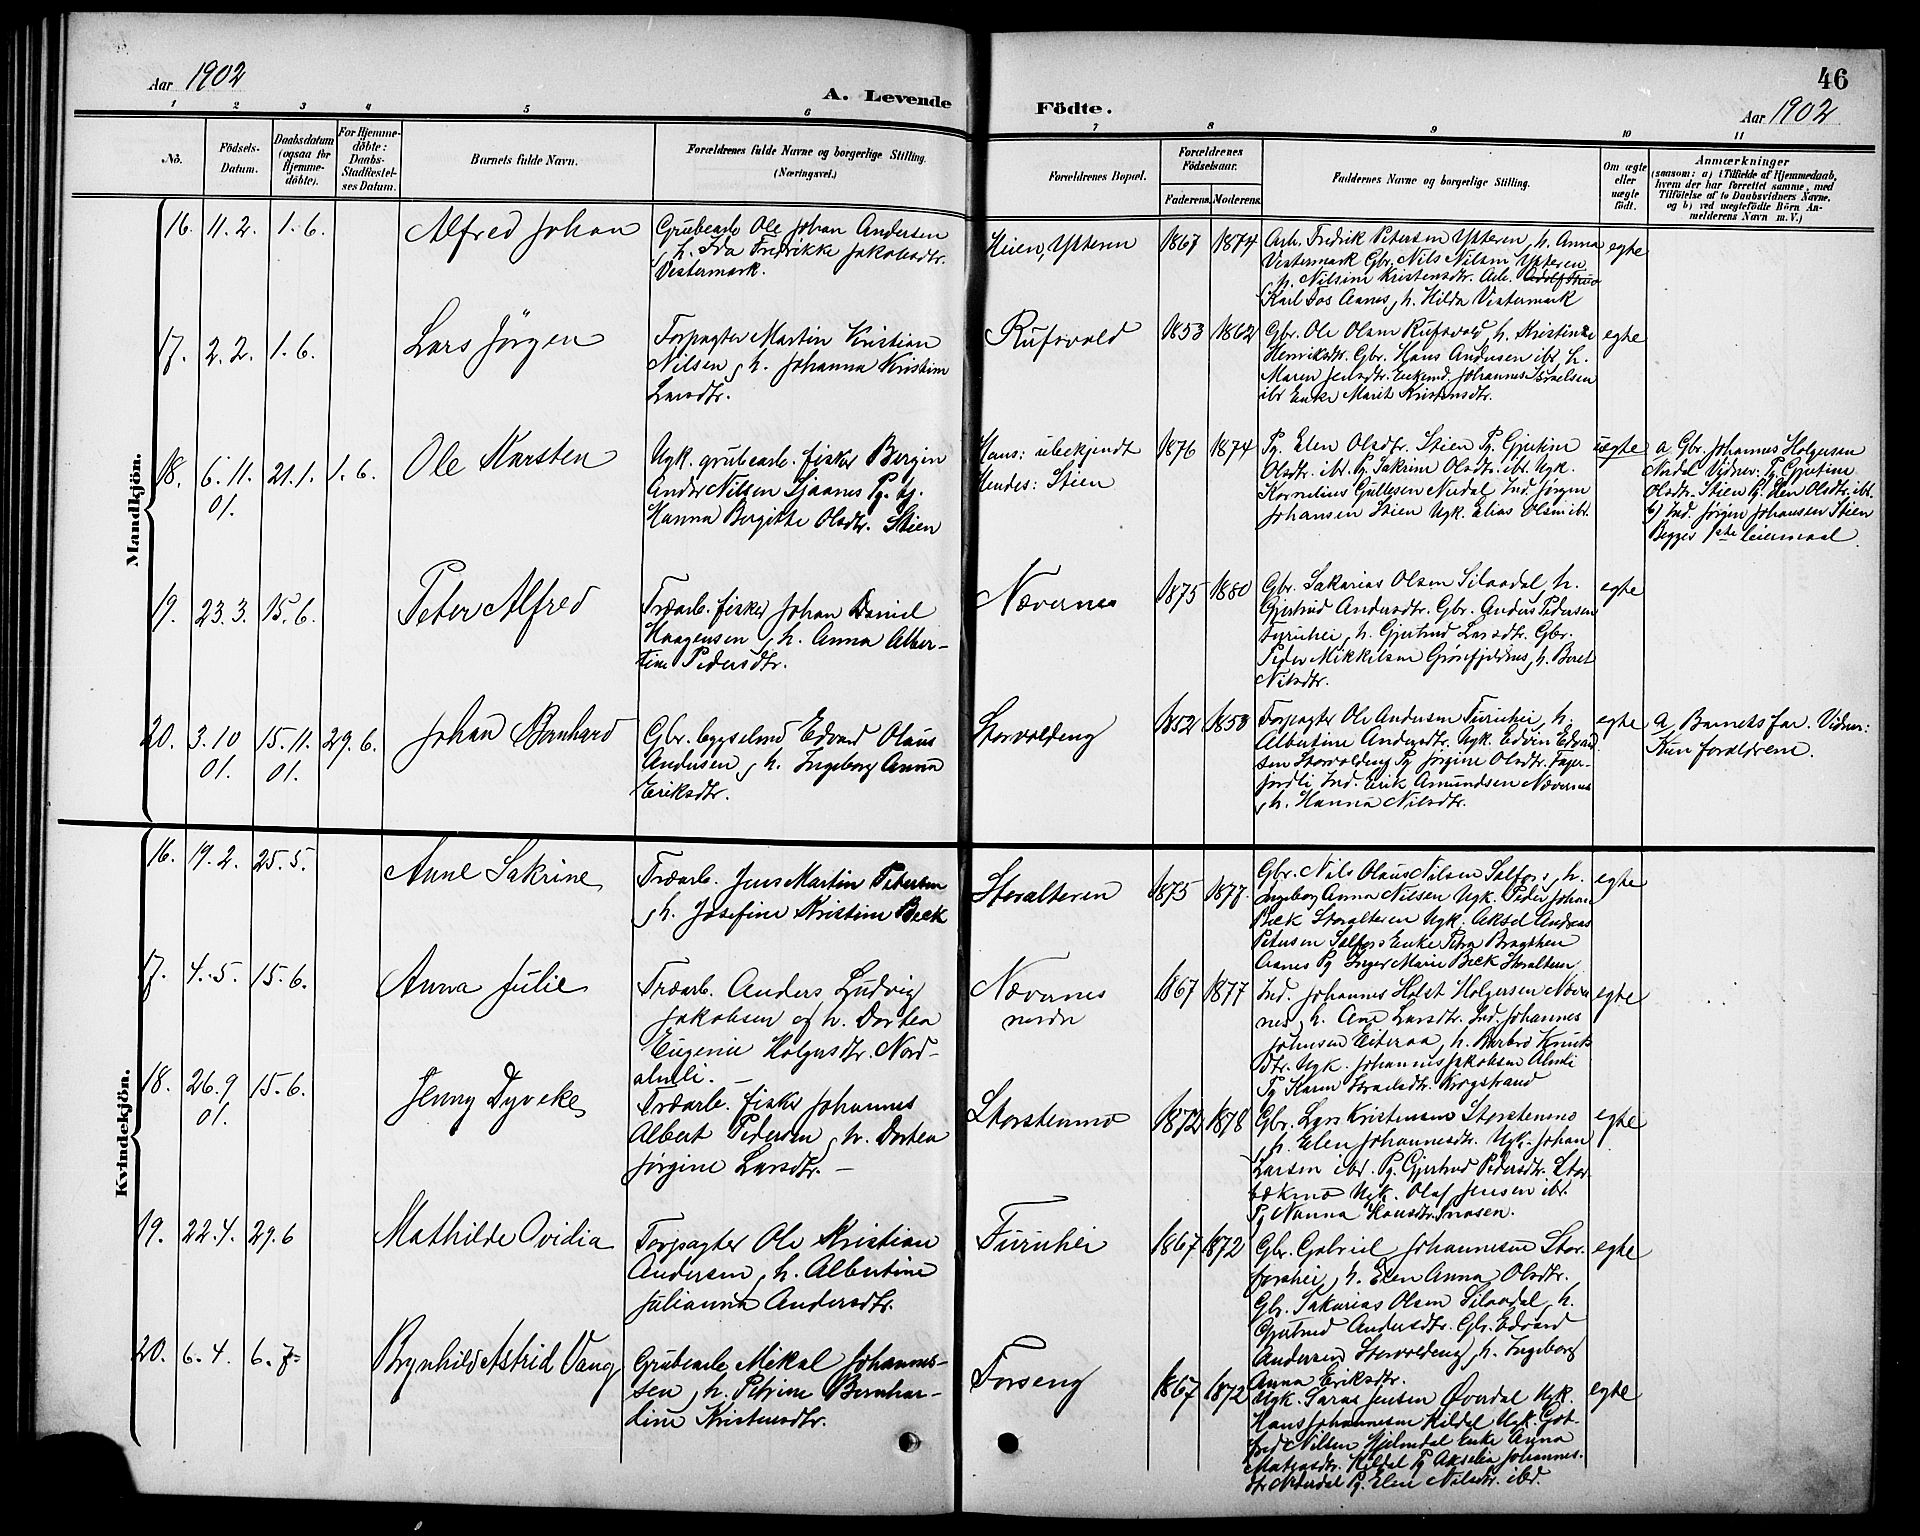 Aar 1902
A. Levende
Födte.
46
Aar 1902
1 2 3 4 5 6 7 8 9 10 11
No.
Födsels-
Datum.
Daabsdatum
(ogsaa for
Hjemme-
döbte).
For Hjemme-
döbte:
Daabs-
Stadfæstel-
ses Datum.
Barnets fulde Navn.
Forældrenes fulde Navne og borgerlige Stilling.
(Næringsvei.)
Forældrenes Bopæl.
Forældrenes
Födselsaar.
Faderens. Moderens.
Faddernes Navne og borgerlige Stilling.
Om ægte
eller
uægte
födt.
Anmærkninger
(saasom: a) i Tilfælde af Hjemmedaab,
hvem der har forrettet samme, med
Tilföielse af to Daabsvidners Navne.
og b) ved uægtefödte Börn An-
melderens Navn m. V.)
Mandkjön.
16. 11.2. 1.6.
Alfred Johan
Grubearb Ole Johan Andersen
, h. Ida Fredrikke Jakobsdtr.
Vestermark.
Heien, Ytteren
1867 1874
Arb. Fredrik Petersen Ytteren, h. Anna
Vestermark Gbr. Nils Nilsen Ytteren
, h. Nilsine Kristensdtr. Arb.
Karl Fos Aanes, h. Hilda Vestermark
egte
17. 2.2. 1.6.
Lars Jörgen
Forpagter Martin Kristian
Nilsen, h. Johanna Kristine
Larsdtr.
Rufsvold
1853 1862
Gbr. Ole Olsen Rufsvold, h. Kristine
Henriksdtr. Gbr. Hans Andersen ibr, h.
Maren Jensdtr. Enkemd. Johannes Israelsen
ibr Enke Marit Kristensdtr.
egte
18. 6.11. 21.1. 1.6.
01.
Ole Karsten
Ugk. grubearb. fisker Bergin
Ander Nilsen Sjaanes Pg. tj.
Hanna Bergitte Olsdtr. Stien
Hans: ubekjendt
Hendes: Stien
1876 1874
Pg. Elen Olsdtr. Stien Pg. Gjertine
Olsdtr. ibr. Pg. Sakrine Olsdtr. ibr. Ugk.
Kornelius Gullesen Nerdal Ind. Jørgen
Johansen Stien Ugk. Elias Olsen ibr.
uegte
a Gbr. Johannes Holgersen
Nordal Vidner: Pg. Gjertine
Olsdtr. Stien Pg. Elen Olsdtr. ibr.
b) Ind. Jørgen Johansen Stien
Begges 1ste leiermaal.
19. 23.3. 15.6.
Peter Alfred
Træarb. fisker Johan Daniel
Haagensen, h. Anna Alber-
tine Pedersdtr.
Nævernes
1875 1880
Gbr. Sakarias Olsen Silaadal, h.
Gjertrud Andersdtr. Gbr. Anders Pedersen
Furuhei, h. Gjertrud Larsdtr. Gbr.
Peder Mikkelsen Grönfjeldnes, h. Beret
Nilsdtr.
egte
20. 3.10 15.11. 29.6.
01. 01.
Johan Bernhard
Gbr. bygselmd Edvard Olaus
Andersen, h. Ingeborg Anna
Eriksdtr.
Storvoldeng
1852 1853
Forpagter Ole Andersen Furuhei, h.
Albertine Andersdtr. Ugk. Edvin Edvard
sen Storvoldeng Pg Jörgine Olsdtr. Fager-
jordli Ind. Erik Amundsen Nævernes
, h. Hanna Nilsdtr.
egte
a Barnets far. Vidner:
Kun forældrene.
Kvindekjön.
16. 19.2. 25.5.
Anne Sakrine
Træarb. Jens Martin Petersen
, h. Josefine Kristine Beck
Storalteren
1875 1877.
Gbr. Nils Olaus Nilsen Selfors, h.
Ingeborg Anna Nilsen Ugk. Peder Johan
Beck Storalteren Ugk. Aksel Andreas
Petersen Selfors Enke Petra
Aanes Pg Inger Marie Beck Storalteren
egte
17. 4.5. 15.6.
Anna Julie
Træarb. Anders Ludvig
Jakobsen og h. Dortea
Eugenie Holgersdtr. Nord-
almli. —
Nævernes
1867 1877
Ind. Johannes Holst Holgersen Næver
nes, h. Ane Larsdtr. Ind. Johannes
Johnsen Eiteraa, h. Barbro Knuts
dtr. Ugk. Johannes Jakobsen Almli
Pg Karen Israelsdtr. Krogstrand
egte
18. 26.9 15.6.
01.
Jenny Dyveke
Træarb. fisker Johannes
Albert Pedersen, h. Dortea
Jørgine Larsdtr. —
Storstenmo
1872 1878
Gbr. Lars Kristensen Storstenmo
, h. Elen Johannesdtr. Ugk. Johan
Larsen ibr. Pg. Gjertrud Pedersdtr. Stor
bækmo Ugk. Olaf Jensen ibr.
Pg Nanna Hansdtr.
egte
19. 22.4. 29.6
Mathilde Ovidia
Forpagter Ole Kristian
Andersen, h. Albertine
Julianna Andersdtr.
Furuhei
1867 1872
Gbr. Gabriel Johannesen Stor-
forshei, h. Elen Anna Olsdtr.
Gbr. Sakarias Olsen Silaadal, h.
Gjertrud Andersdtr. Gbr. Edvard
Andersen Storvoldeng, h. Ingeborg
Anna Eriksdtr.
egte
20. 6.4. 6.7.
Brynhild Astrid Vang
Grubearb Mikal Johannes-
sen, h. Petrine Bernhar-
dine Kristensdtr.
Forseng
1867 1872
Ugk. Jensen Øverdal Ugk.
Hans Johannesen Kildal Ugk. Got-
fred Nilsen Hjelmedal Enke Anna
Matiasdtr. Kildal Pg Akselia Johannes-
dtr Nederdal Pg. Elen Nilsdtr. ibd.
egte